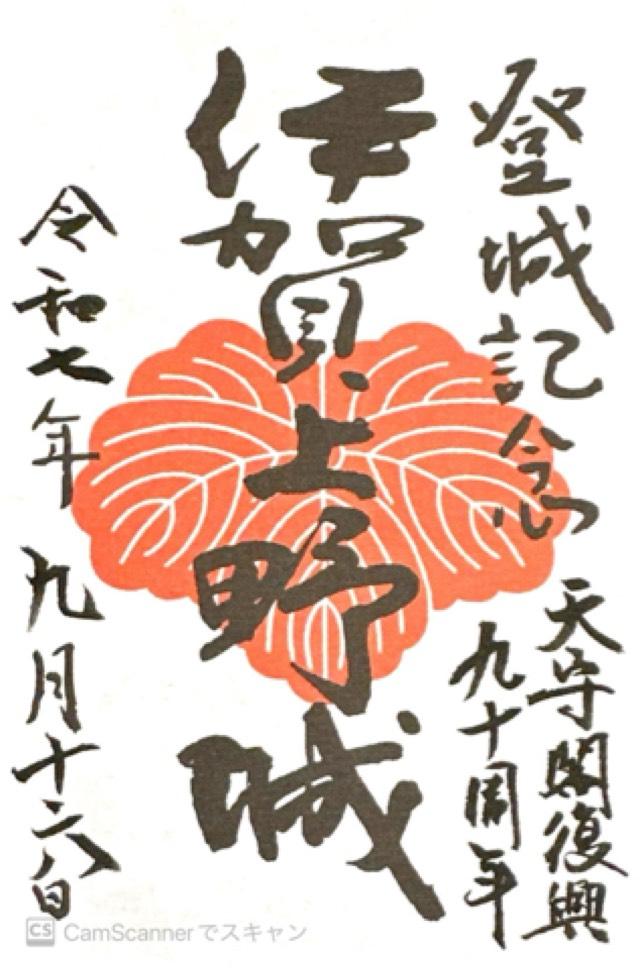 登城記念
天守閣復興
九十周年
伊賀上野城
令和七年 九月十二八日
CS CamScannerでスキャン